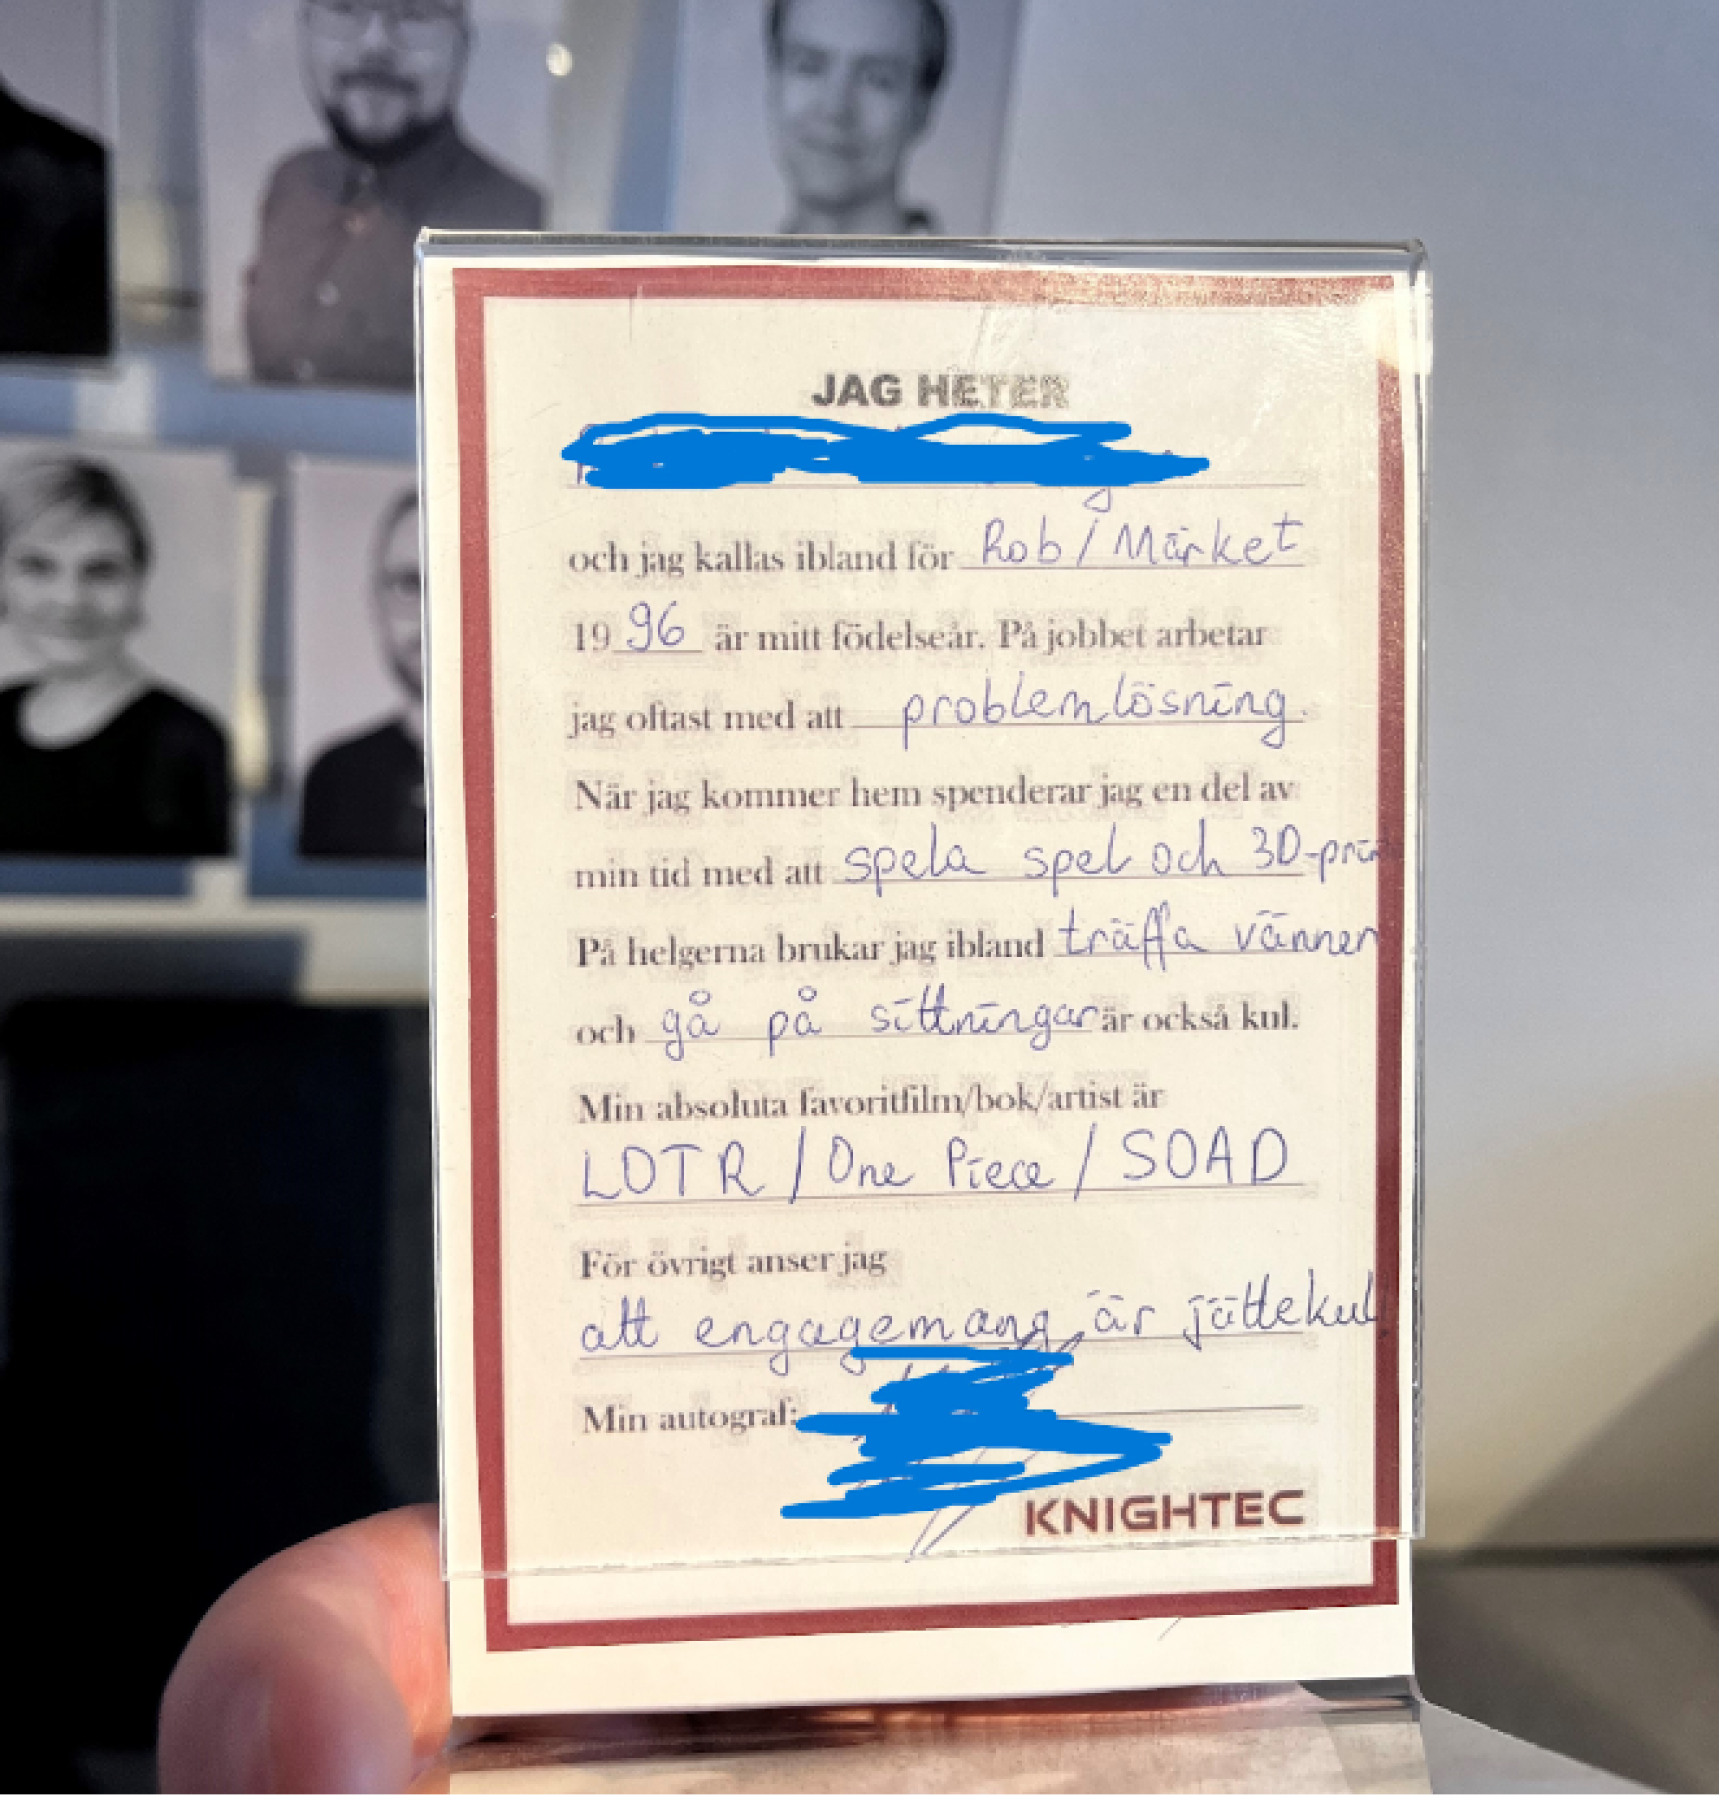 JAG HETER
och jag kallas ibland för Rob / Märket
1996 är mitt födelseår. På jobbet arbetar
jag oftast med att problemlösning.
När jag kommer hem spenderar jag en del av
min tid med att spela spel och 3D-prin
På helgerna brukar jag ibland träffa vänner
och gå på sittningar är också kul.
Min absoluta favoritfilm/bok/artist är
LOTR / One Piece / SOAD
För övrigt anser jag
att engagemang är jättekul
Min autograf:
KNIGHTEC